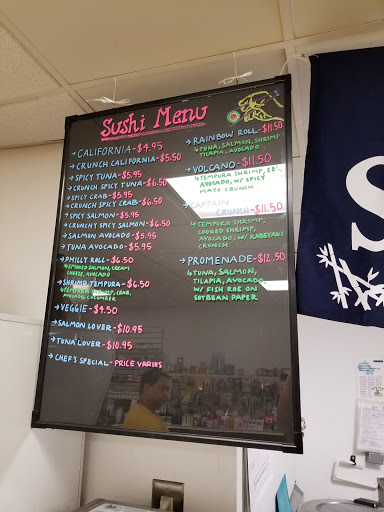 Sushi Menu
→ CALIFORNIA - $4.95
→ CRUNCH CALIFORNIA - $5.50
→ SPICY TUNA - $5.95
→ CRUNCH SPICY TUNA - $6.50
→ SPICY CRAB - $5.95
→ CRUNCH SPICY CRAB - $6.50
→ SPICY SALMON - $5.95
→ CRUNCHY SPICY SALMON - $6.50
→ SALMON AVOCADO - $5.95
→ TUNA AVOCADO - $5.95
→ PHILLY ROLL - $6.50
↳ SMOKED SALMON, CREAM
CHEESE, AVOCADO
→ SHRIMP TEMPURA - $6.50
↳ TEMPURA SHRIMP, CRAB,
AVOCADO, CUCUMBER
→ VEGGIE - $4.50
→ SALMON LOVER - $10.95
→ TUNA LOVER - $10.95
→ CHEF'S SPECIAL - PRICE VARIES
→ RAINBOW ROLL - $11.50
↳ TUNA, SALMON, SHRIMP,
TILAPIA, AVOCADO
→ VOLCANO - $11.50
↳ TEMPURA SHRIMP, EEL,
AVOCADO, W/ SPICY
MAYO CRUNCH
→ CAPTAIN
CRUNCH - $11.50
↳ TEMPURA SHRIMP,
COOKED SHRIMP,
AVOCADO, W/ KABETAKI
CRUNCH
→ PROMENADE - $12.50
↳ TUNA, SALMON,
TILAPIA, AVOCADO
W/ FISH ROE ON
SOYBEAN PAPER
S